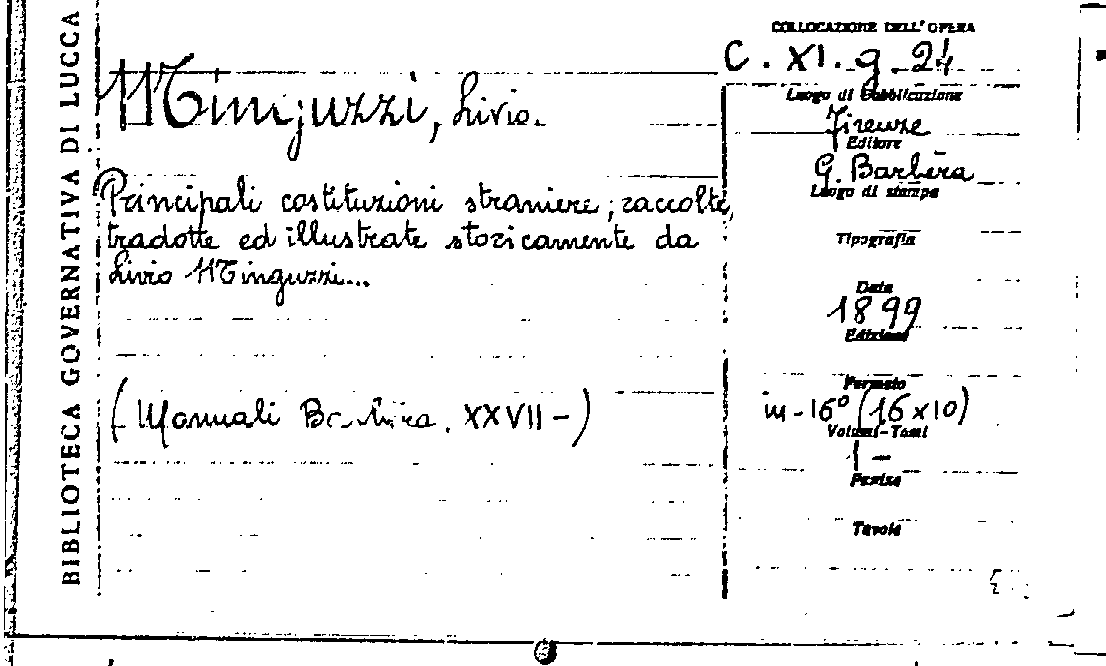 BIBLIOTECA GOVERNATIVA DI LUCCA
Minguzzi, Livio.
Principali costituzioni straniere; raccolte,
tradotte ed illustrate storicamente da
Livio Minguzzi...
(Manuali Barbèra. XXVII-)
COLLOCAZIONE DELL'OPERA
C. XI. g. 24
Luogo di Pubblicazione
Firenze
Editore
G. Barbèra
Luogo di stampa
Tipografia
Data
1899
Edizione
Formato
in-16° (16x10)
Volumi-Tomi
1-
Pagine
Tavole